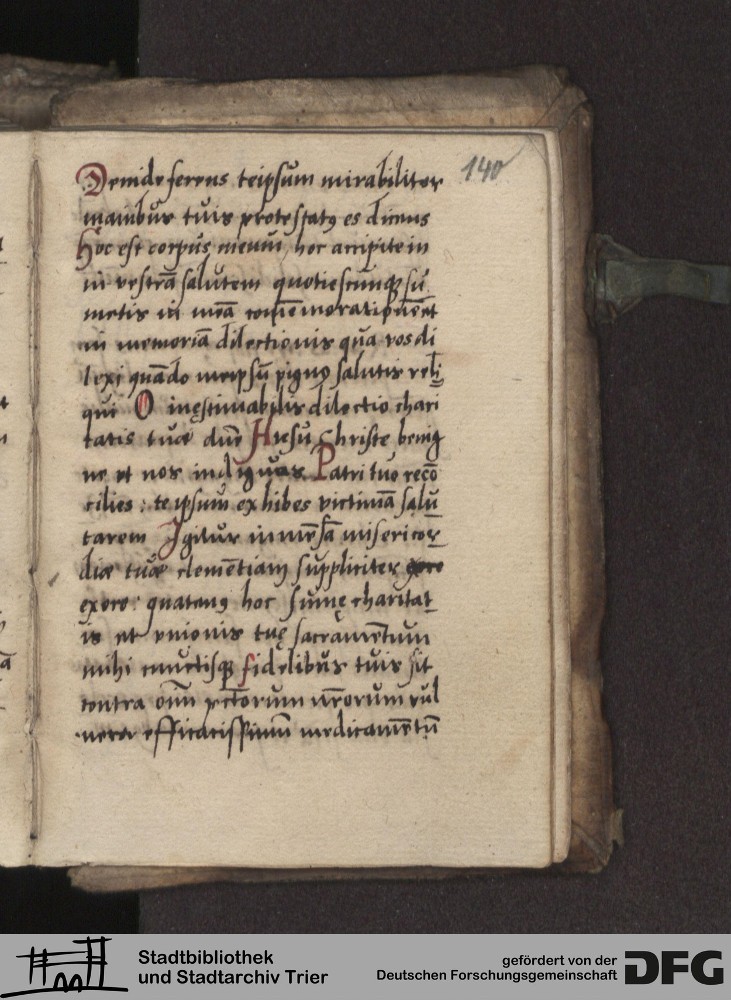 Deinde ferens teipsum mirabiliter 140
manibus tuis protestatꝯ es dicens
Hoc est corpus meum, hoc accipite in
in vestrā salutem quotiescunqꝫ sū
metis in meā
in memoriā dilectionis qua vos di
lexi quādo meipsū pignꝯ salutis reli
qui O inęstimabilis dilectio chari
tatis tuæ dn̄e Hiesu Christe benig
ne vt nos indignos Patri tuo recō
cilies: te ipsum exhibes victimā salu
tarem Igitur inmēsā misericor
diæ tuæ clemētiam suppliciter
exoro: quatenꝯ hoc sūmę charitat
is et vnionis tuę sacramētum
mihi cunctisqꝫ fidelibus tuis sit
contra oīm pctōrum nr̄orum vul
nera efficacissimū medicamētū
Stadtbibliothek
und Stadtarchiv Trier
gefördert von der
Deutschen Forschungsgemeinschaft DFG